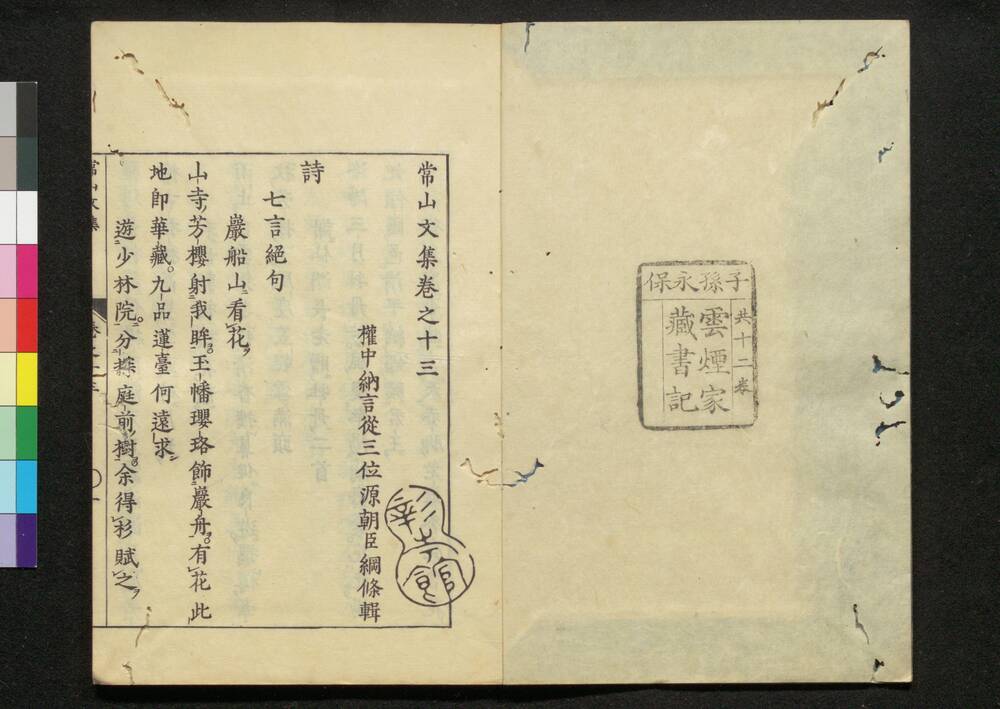 子孫永保
共十二卷
雲煙家
藏書記
常山文集卷之十三
權中納言從三位源朝臣綱條輯
彰考館
詩
七言絕句
巖船山ニ看花ヲ
山寺芳櫻射我眸玉幡瓔珞飾巖舟有花此
地即華藏。九品蓮臺何遠求
遊少林院分探庭前樹余得彩賦之
常山文集